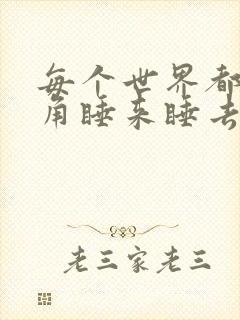 每个世界都
角睡来睡去
老三家老三